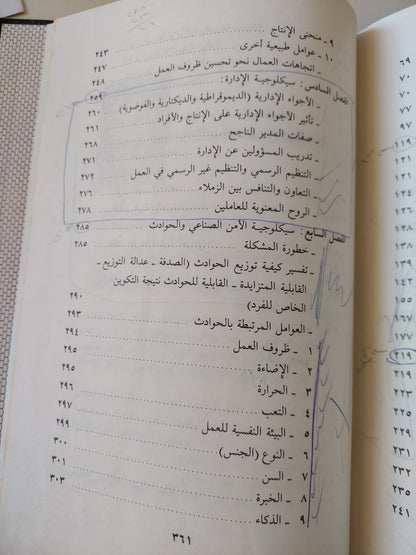 ٩ ـ منحنى الإنتاج
١٠ ـ عوامل طبيعية أخرى ٢٤٣
ـ اتجاهات العمال نحو تحسين ظروف العمل ٢٤٧
الفصل السادس : سيكلوجية الإدارة: ٢٤٨
ـ الأجواء الإدارية (الديموقراطية والديكتارية والفوضوية) ٢٥٩
ـ تأثير الأجواء الإدارية على الإنتاج والأفراد ٢٦٠
ـ صفات المدير الناجح ٢٦١
ـ تدريب المسؤولين عن الإدارة ٢٦٨
ـ التنظيم الرسمي والتنظيم غير الرسمي في العمل ٢٧١
ـ التعاون والتنافس بين الزملاء ٢٧٢
ـ الروح المعنوية للعاملين ٢٧٦
٢٧٨
الفصل السابع : سيكلوجية الأمن الصناعي والحوادث ٢٨٥
ـ خطورة المشكلة ٢٨٥
ـ تفسير كيفية توزيع الحوادث (الصدفة ـ عدالة التوزيع ـ
القابلية المتزايدة ـ القابلية للحوادث نتيجة التكوين
الخاص للفرد) ٢٩٠
ـ العوامل المرتبطة بالحوادث ٢٩٣
١ ـ ظروف العمل ٢٩٤
٢ ـ الإضاءة ٢٩٥
٣ ـ الحرارة ٢٩٥
٤ ـ التعب ٢٩٦
٥ ـ البيئة النفسية للعمل ٢٩٧
٦ ـ النوع (الجنس) ٢٩٩
٧ ـ السن ٣٠٠
٨ ـ الخبرة ٣٠١
٩ ـ الذكاء ٣٠٣
٣٦١
٦٩
١١٩
١٦٧
١٧٧
٢١٩
٢١٩
٢٤١